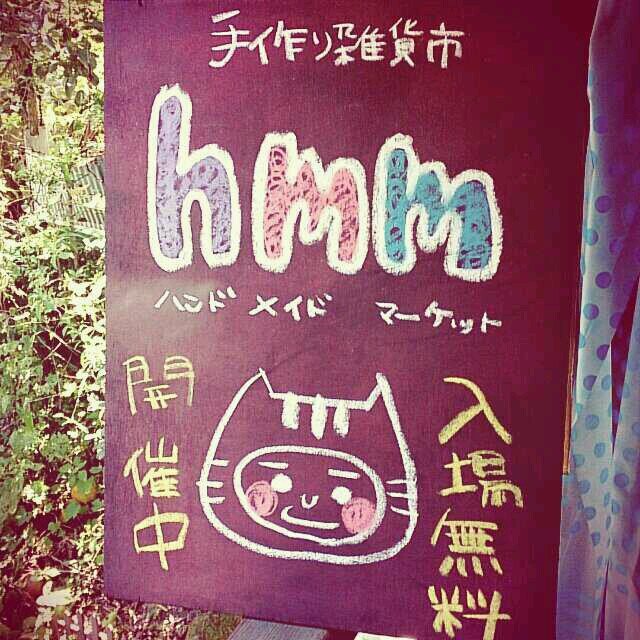 手作り雑貨市
hmm
ハンド メイド マーケット
開催中
入場無料